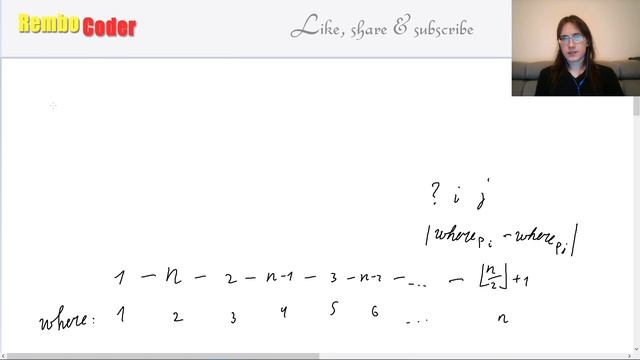 Rembo Coder
Like, share & subscribe
? i j
|where p_i - where p_j|
1 - n - 2 - n-1 - 3 - n-2 - ... - ⌊n/2⌋+1
where: 1 2 3 4 5 6 ... n